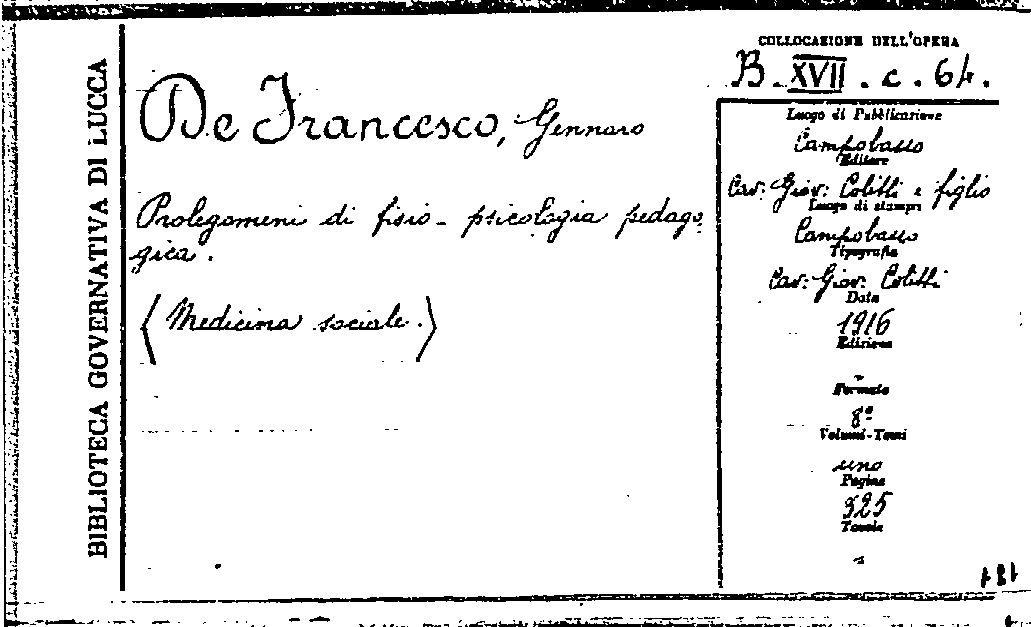 BIBLIOTECA GOVERNATIVA DI LUCCA
De Francesco, Gennaro
Prolegomeni di fisio-psicologia pedago-
gica.
(Medicina sociale.)
COLLOCAZIONE DELL'OPERA
B. XVII. c. 64.
Luogo di Pubblicazione
Campobasso
Editore
Cav: Giov: Colitti e figlio
Luogo di stampa
Campobasso
Tipografia
Cav: Giov: Colitti
Data
1916
Edizione
-
Formato
8º
Volumi-Tomi
uno
Pagine
325
Tavole